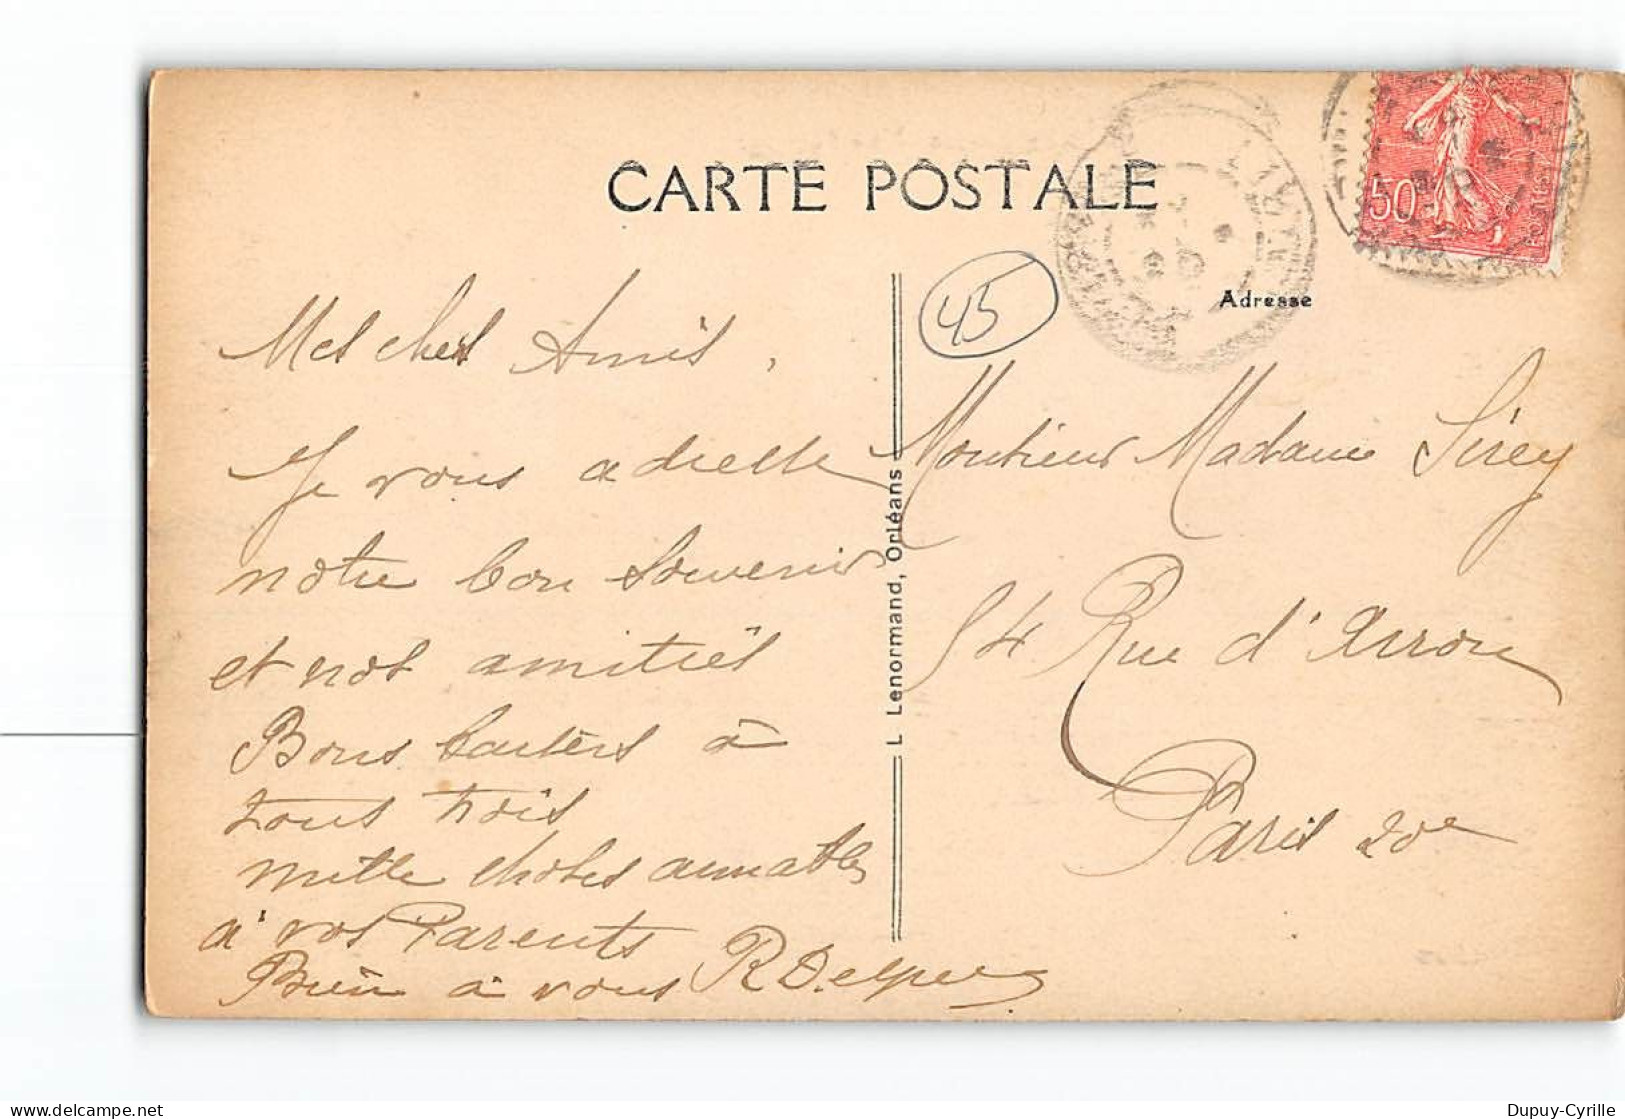 CARTE POSTALE
50
45
Adresse
Mes chers Amis,
Je vous adresse
notre bon souvenir
et nos amitiés
Bons baisers à
tous trois
mille choses aimables
à vos Parents
Bien à vous
L Lenormand, Orléans
Monsieur Madame Sirey
54 Rue d'Avron
Paris 20e
Dupuy-Cyrille
delcampe.net